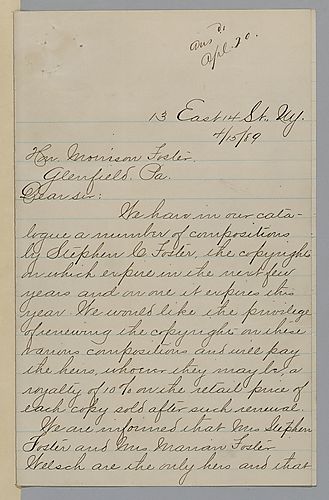 Ans'd
Apl. 20.
13 East 14 St. NY.
4/15/89
Hon. Morrison Foster.
Glenfield. Pa.
Dear Sir:
We have in our cata-
logue a number of compositions
by Stephen C Foster, the copyrights
on which expire in the next few
years and on one it expires this
year. We would like the privilege
of renewing the copyrights on these
various compositions and will pay
the heirs, whoever they may be, a
royalty of 10% on the retail price of
each copy sold after such renewal.
We are informed that Mrs Stephen
Foster and Mrs Marian Foster
Welsch are the only heirs and that